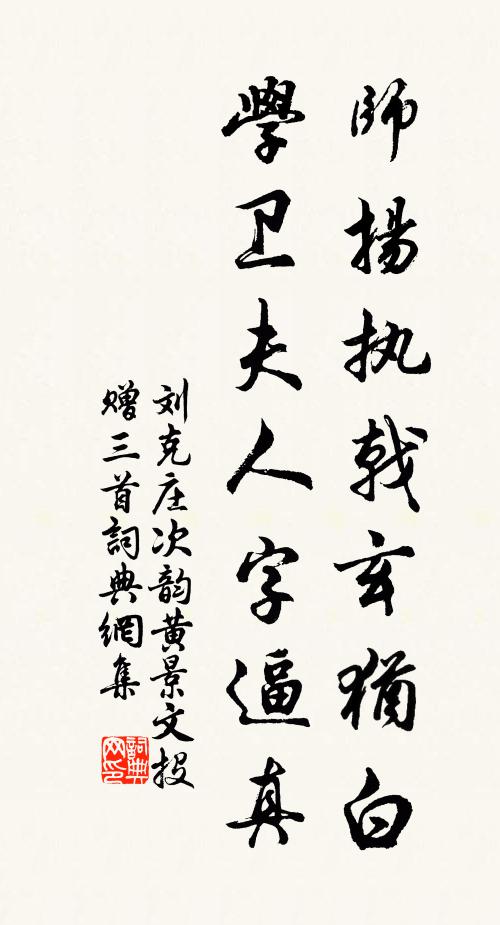 師揚执戟玄猶白
學卫夫人字逼真
刘克庄次韵黄景文投
赠三首詞典網集
詞典网印